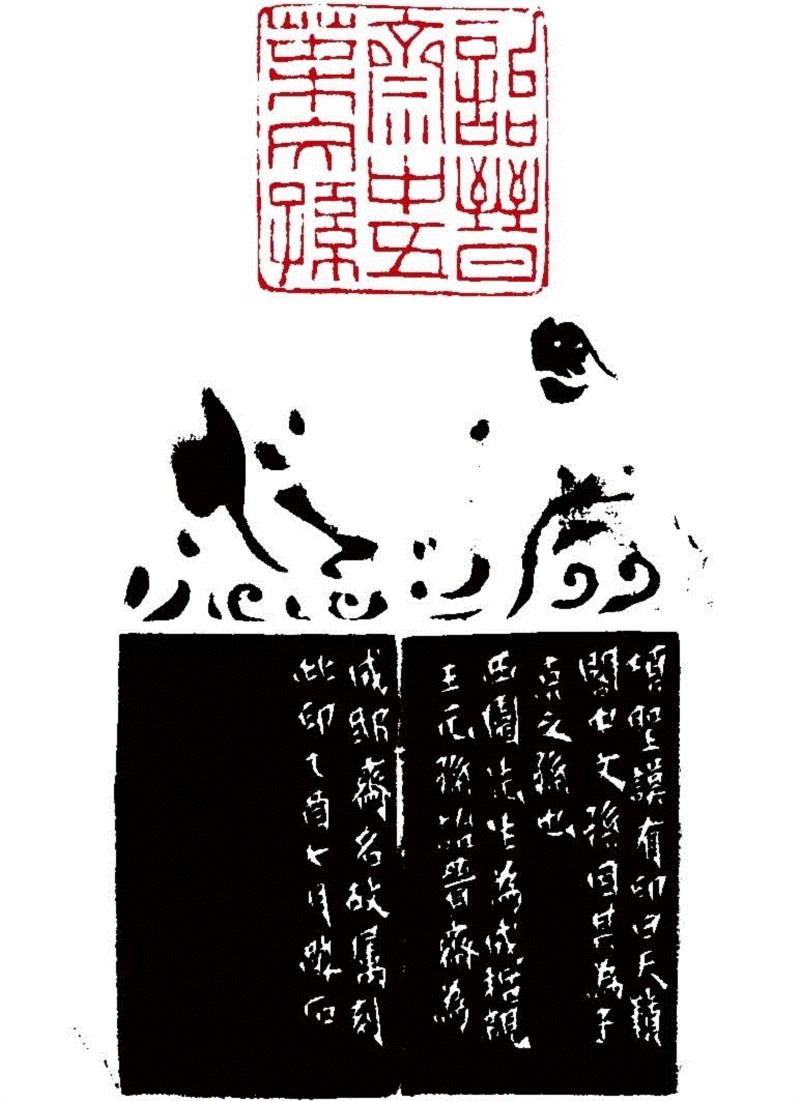 詒晉
齋中五
葉文孫
項聖謨有印曰天籟
閣中文孫因其為子
京之孫也
西園先生為成哲親
王元孫詒晉齋為
成邸齋名故屬刻
此印乙酉七月石